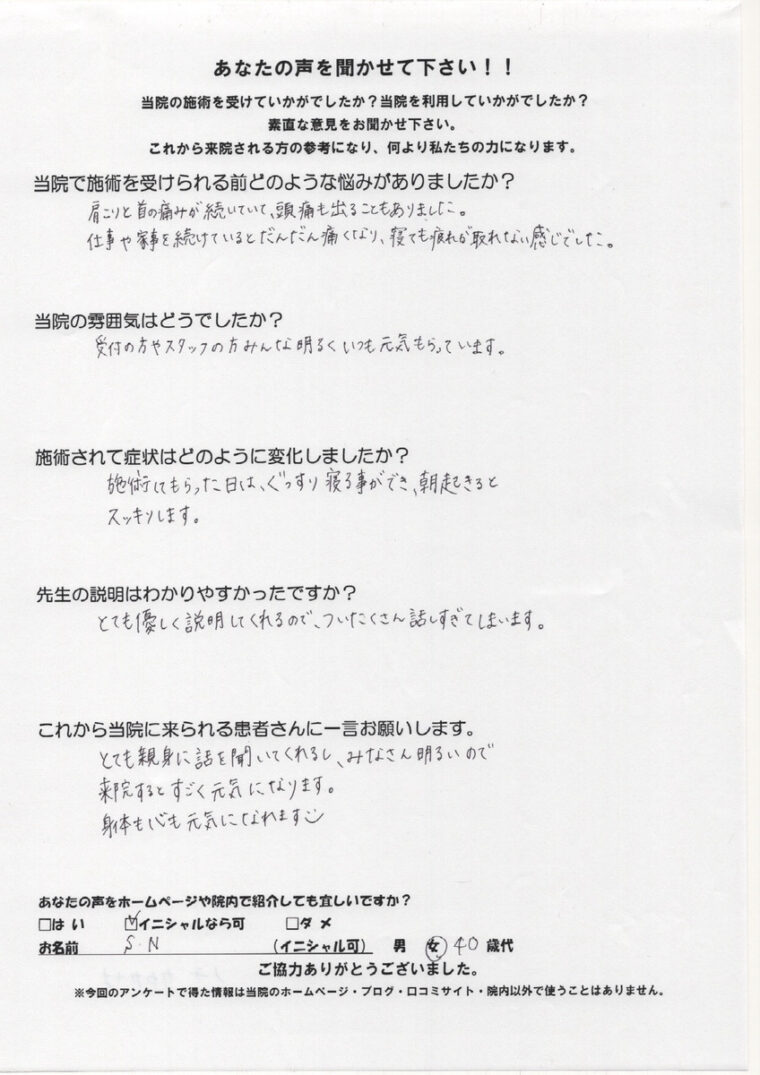 あなたの声を聞かせて下さい！！
当院の施術を受けていかがでしたか？当院を利用していかがでしたか？
素直な意見をお聞かせ下さい。
これから来院される方の参考になり、何より私たちの力になります。
当院で施術を受けられる前どのような悩みがありましたか？
肩こりと首の痛みが続いていて、頭痛も出ることもありました。
仕事や家事を続けているとだんだん痛くなり、寝ても疲れが取れない感じでした。
当院の雰囲気はどうでしたか？
受付の方やスタッフの方みんな明るくいつも元気もらっています。
施術されて症状はどのように変化しましたか？
施術してもらった日は、ぐっすり寝る事ができ、朝起きると
スッキリします。
先生の説明はわかりやすかったですか？
とても優しく説明してくれるので、ついたくさん話しすぎてしまいます。
これから当院に来られる患者さんに一言お願いします。
とても親身に話を聞いてくれるし、みなさん明るいので
来院するとすごく元気になります。
身体も心も元気になれます
あなたの声をホームページや院内で紹介しても宜しいですか？
□はい ☑イニシャルなら可 □ダメ
お名前 S.N (イニシャル可) 男 女 40歳代
ご協力ありがとうございました。
※今回のアンケートで得た情報は当院のホームページ・ブログ・口コミサイト・院内以外で使うことはありません。